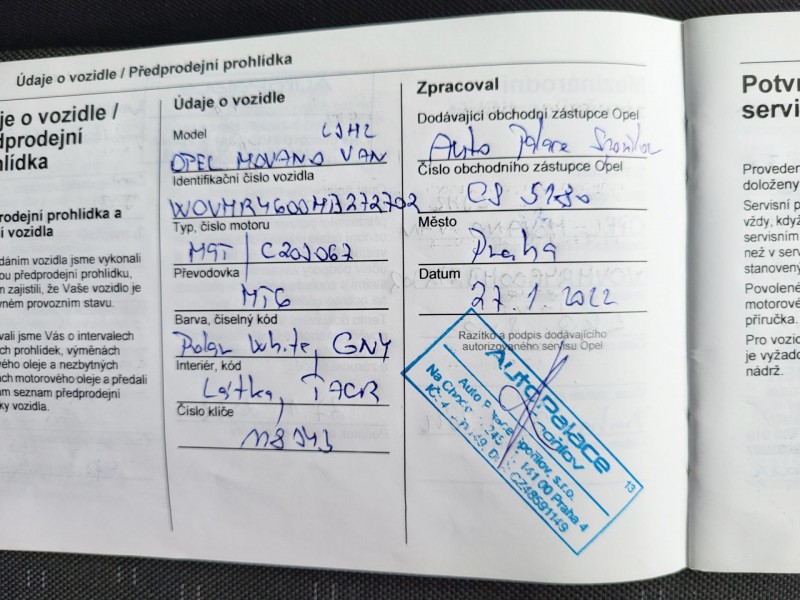 Údaje o vozidle / Předprodejní prohlídka
je o vozidle /
dprodejní
hlídka
rodejní prohlídka a
í vozidla
dáním vozidla jsme vykonali
ou předprodejní prohlídku,
m zajistili, že Vaše vozidlo je
vném provozním stavu.
vali jsme Vás o intervalech
ch prohlídek, výměnách
vého oleje a nezbytných
ách motorového oleje a předali
am seznam předprodejní
ky vozidla.
Údaje o vozidle
Model
L3H2
OPEL MOVANO VAN
Identifikační číslo vozidla
W0VMR4600MB272702
Typ, číslo motoru
M9T C202067
Převodovka
MT6
Barva, číselný kód
Polar White, GNY
Interiér, kód
Látka, TACR
Číslo klíče
Zpracoval
Dodávající obchodní zástupce Opel
Auto Palace Spořilov
Číslo obchodního zástupce Opel
CS 5180
Město
Praha
Datum
27. 1. 2022
Razítko a podpis dodávajícího
autorizovaného servisu Opel
Auto Palace
Spořilov
Auto Palace Spořilov, s.r.o.
141 00 Praha 4
CZ48591149
13
Potvr
servi
Proveden
doloženy
Servisní p
vždy, když
servisním
než v serv
stanovený
Povolené
motorové
příručka.
Pro vozid
je vyžado
nádrž.